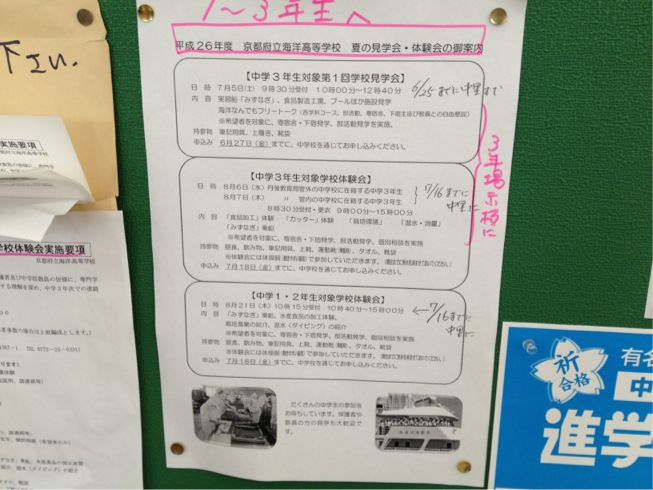 1～3年生へ
平成26年度 京都府立海洋高等学校 夏の見学会・体験会の御案内
【中学3年生対象第1回学校見学会】
日 時 7月5日(土) 9時30分受付 10時00分～12時40分
内 容 実習船「みずなぎ」、食品製造工場、プールほか施設見学
海洋なんでもフリートーク
※希望者を対象に、寄宿舎・下宿見学、部活動見学を実施。
持参物 筆記用具、上履き、靴袋
申込み 6月27日(金)までに、中学校を通じてお申し込みください。
6/25までに中里まで
3年掲示板に
【中学3年生対象学校体験会】
日 時 8月6日(水) 丹後教育局管内の中学校に在籍する中学3年生
8月7日(木) 〃 管内の中学校に在籍する中学3年生
8時30分受付・更衣 9時00分～15時00分
内 容 「食品加工」体験 「カッター」体験 「栽培環境」 「潜水・測量」
「みずなぎ」乗船
※希望者を対象に、寄宿舎・下宿見学、部活動見学、個別相談を実施
持参物 昼食、飲み物、筆記用具、上靴、運動靴、タオル、靴袋
申込み 7月18日(金)までに、中学校を通じてお申し込みください。
7/16までに
中里に
【中学1・2年生対象学校体験会】
日 時 8月21日(木) 10時15分受付 10時40分～15時00分
内 容 「みずなぎ」乗船、水産食品の加工体験、
栽培漁業の紹介、潜水(ダイビング)の紹介
※希望者を対象に、寄宿舎・下宿見学、部活動見学、個別相談を実施
持参物 昼食、飲み物、筆記用具、上靴、運動靴、タオル、靴袋
申込み 7月18日(金)までに、中学校を通じてお申し込みください。
7/16までに
中里に
たくさんの中学生の参加を
お待ちしています。保護者や
教員の方の見学も大歓迎で
す。
下さい。
実施要項
学校体験会実施要項
京都府立海洋高等学校
祈
合格
有名
中
進学